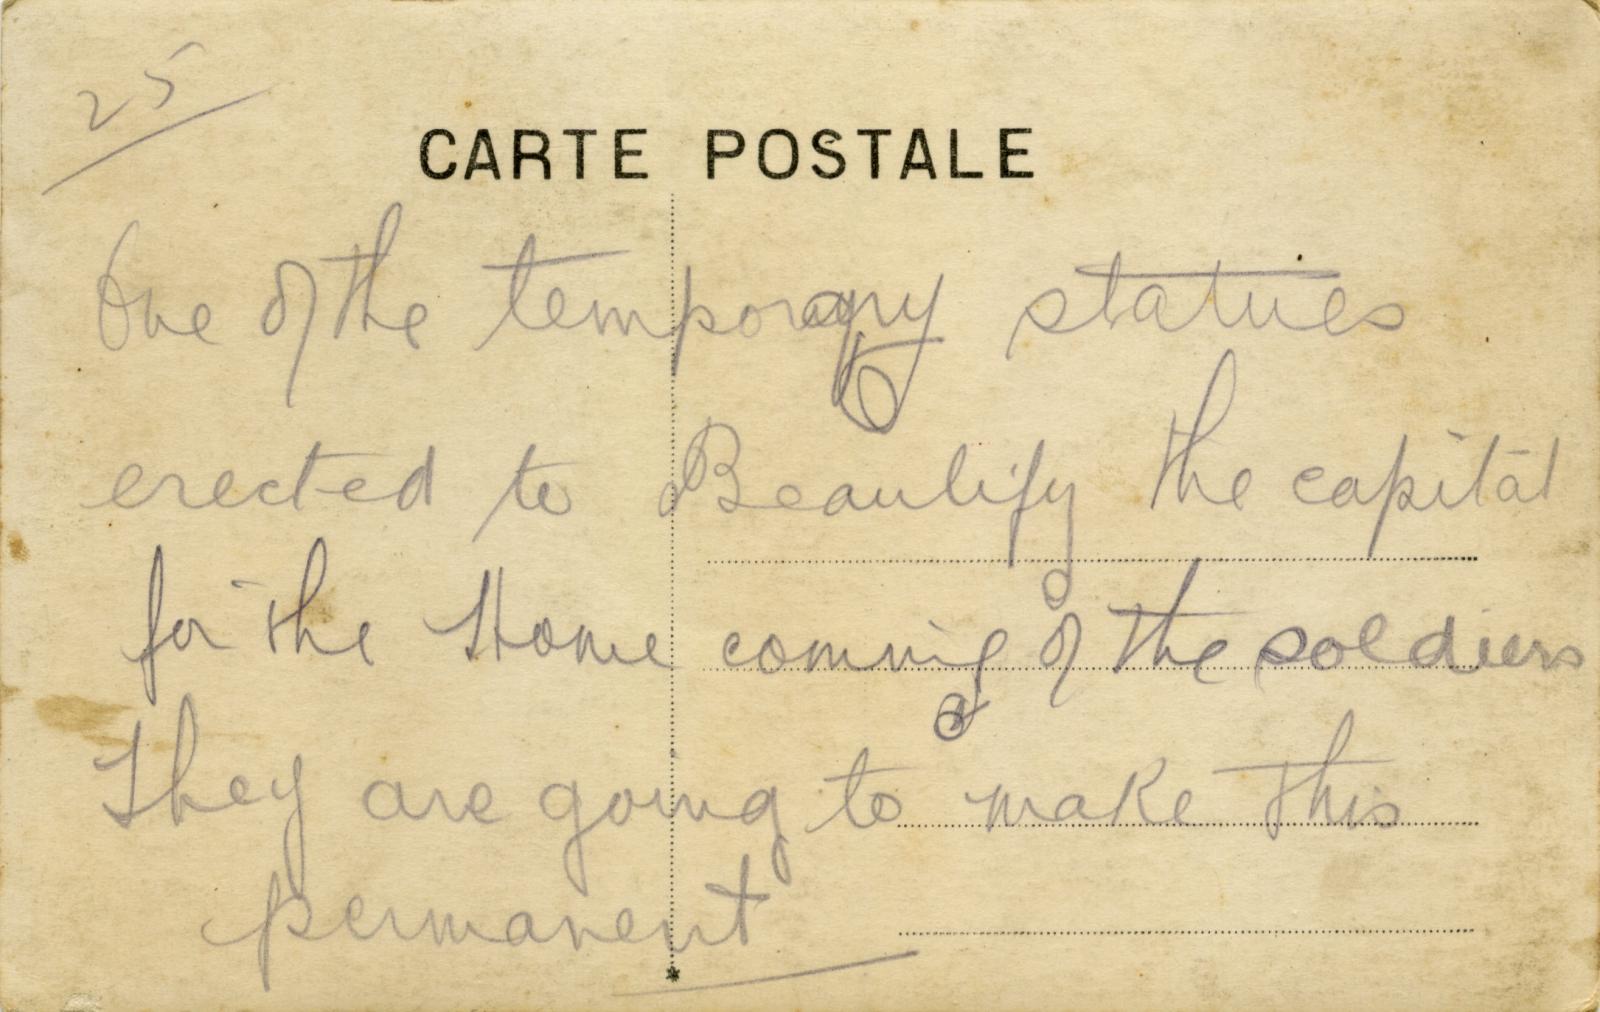 25
CARTE POSTALE
One of the temporary statues
erected to Beautify the capital
for the Home coming of the soldiers
They are going to make this
permanent